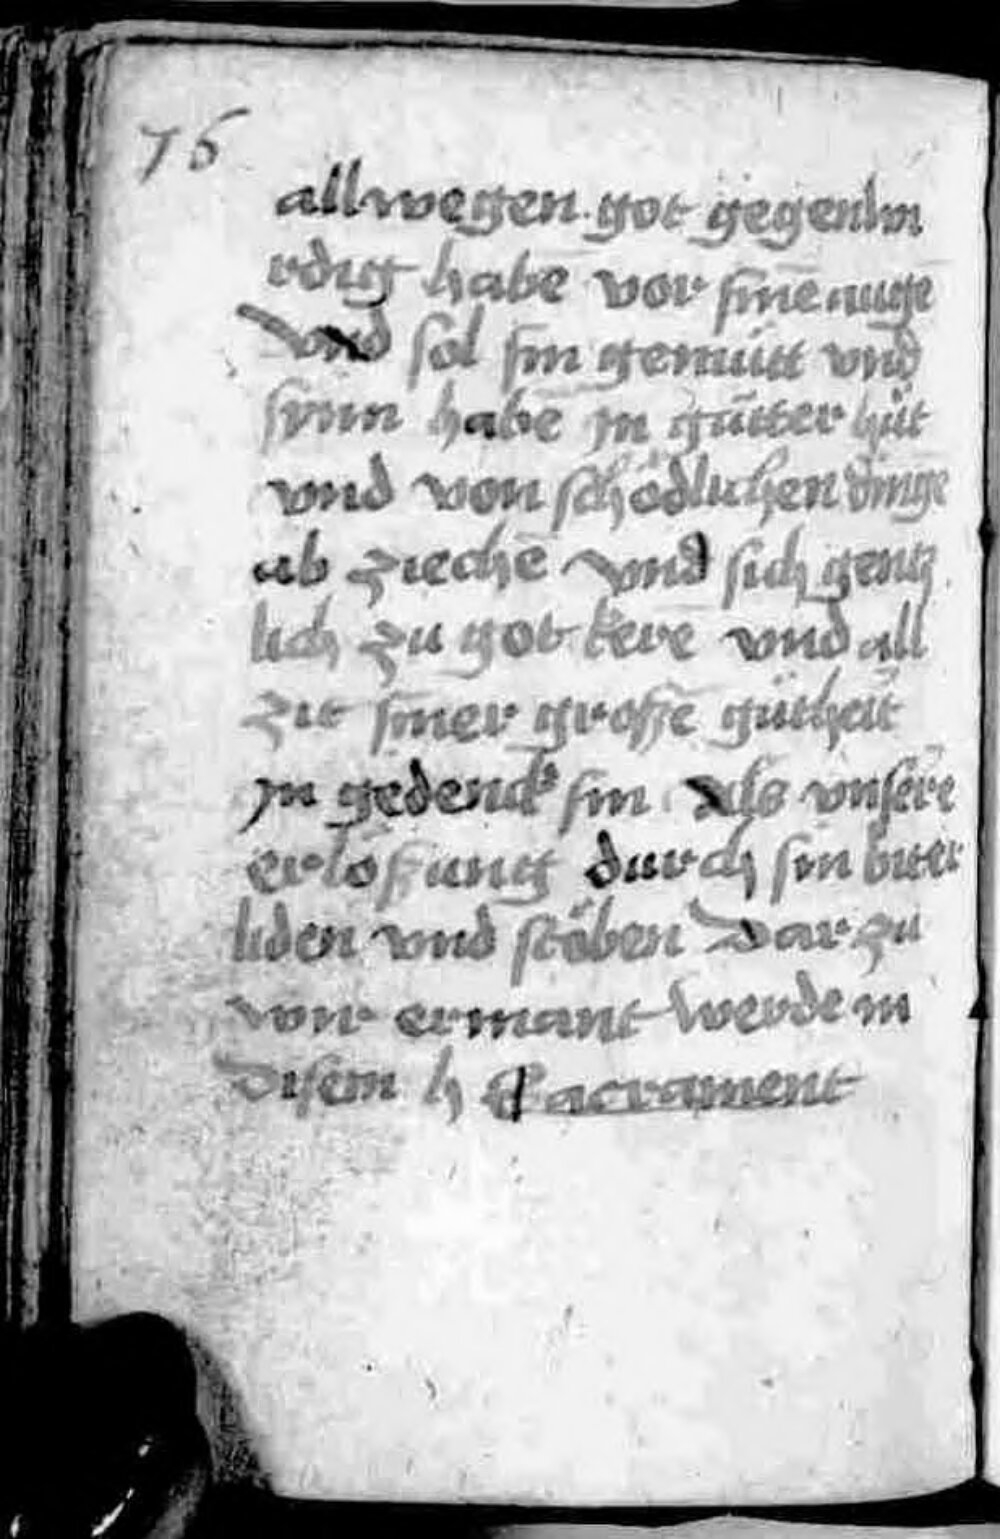 76
allwegen got gegenlw
rdig habē vor sinē auge
vnd sol sin gemütt vnd
synn habē jn gůtter hůt
vnd von schödlichen dinge
ab ziechē vnd sich gentz
lich zu got kere vnd all
zit siner grossē gütheit
jn gedenck sin als vnsere
erlößung durch sin biter
liden vnd stöben dar zu
wir ermant werdē in
disem h Sacrament